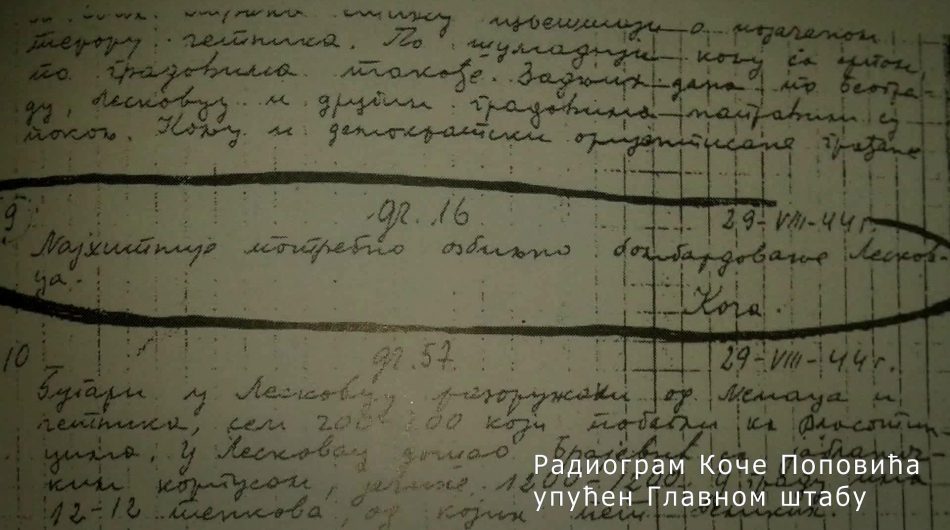 терору четника. По Шумадији
по градовима такође. Задњих дана по Београ-
ду, Лесковцу и другим градовима
покољ. Кољу и демократски оријентисане грађане
9 др. 16 29-VIII-44 г.
Најхитније потребно озбиљно бомбардовање Лесков-
ца.
Коча.
10 др. 57 29-VIII-44 г.
Бугари у Лесковцу разоружани од Немаца и
четника, сем 200 који побегли ка Власотин-
цима. У Лесковац дошао
корпусом, јачине 1200-
12-12 од којих
Радиограм Коче Поповића
упућен Главном штабу